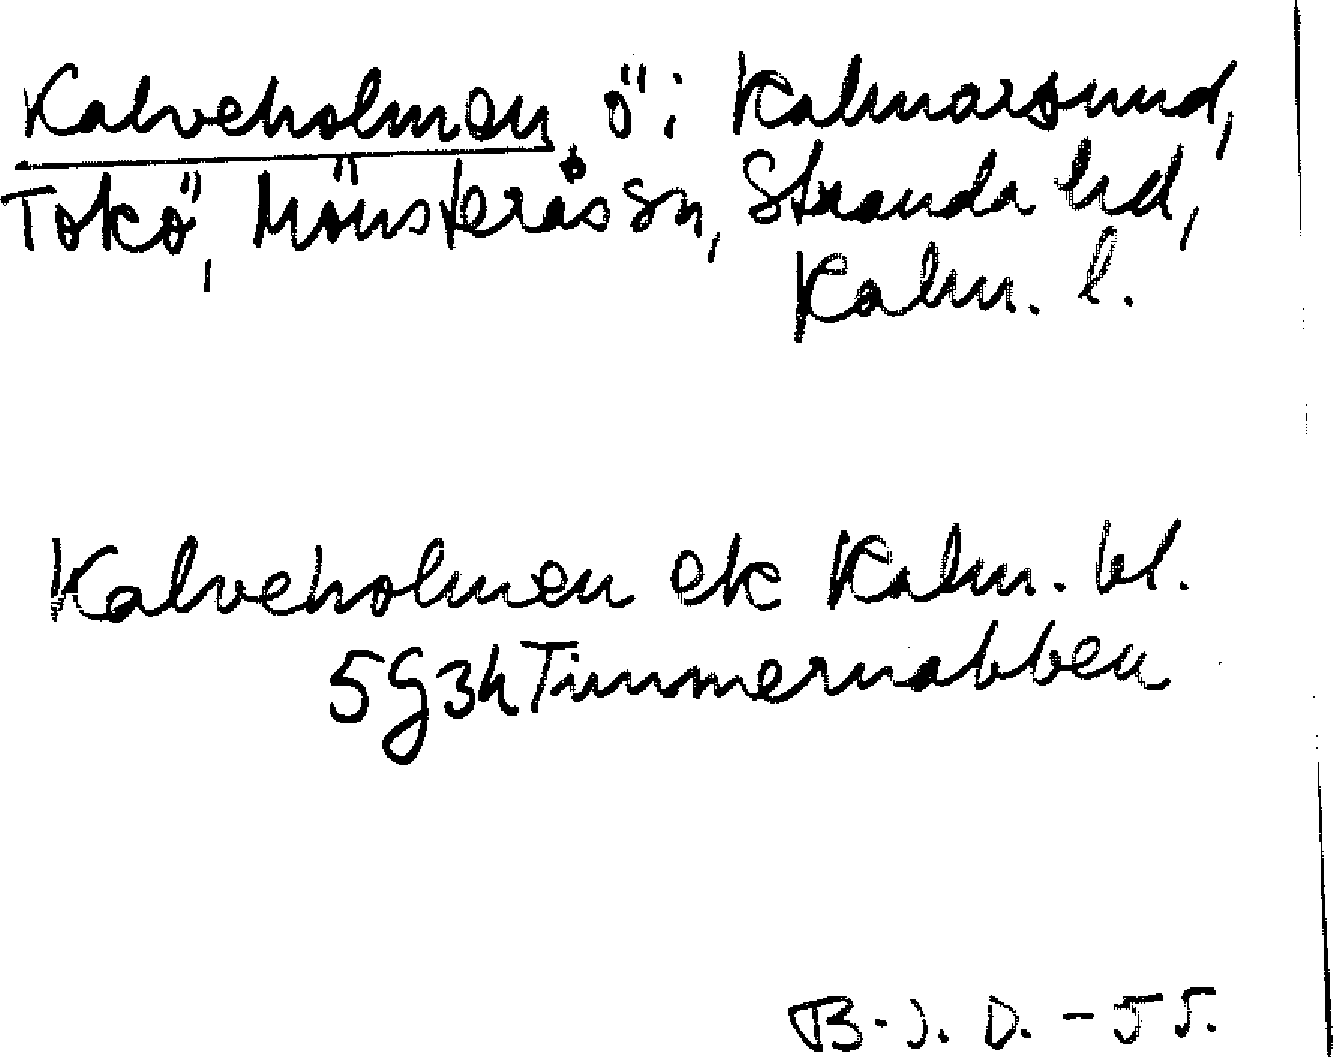 Kalveholmen, ö i Kalmarsund,
Tokö, Mönsterås sn, Stranda hd,
Kalm. l.
Kalveholmen ek Kalm. bl.
5G3h Timmernabben
B-J. D. -55.